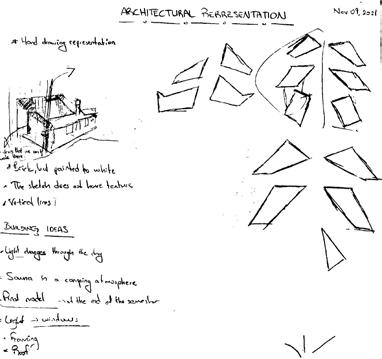 ARCHITECTURAL REPRESENTATION
Nov 09, 2021
* Hand drawing representation
* Brick, but painted to white
- The sketch does not have texture
* Vertical lines
BUILDING IDEAS
- Light changes through the day
- Sauna is a camping atmosphere
- Final model at the end of the semester
- Light → windows
- Framing
- Roof